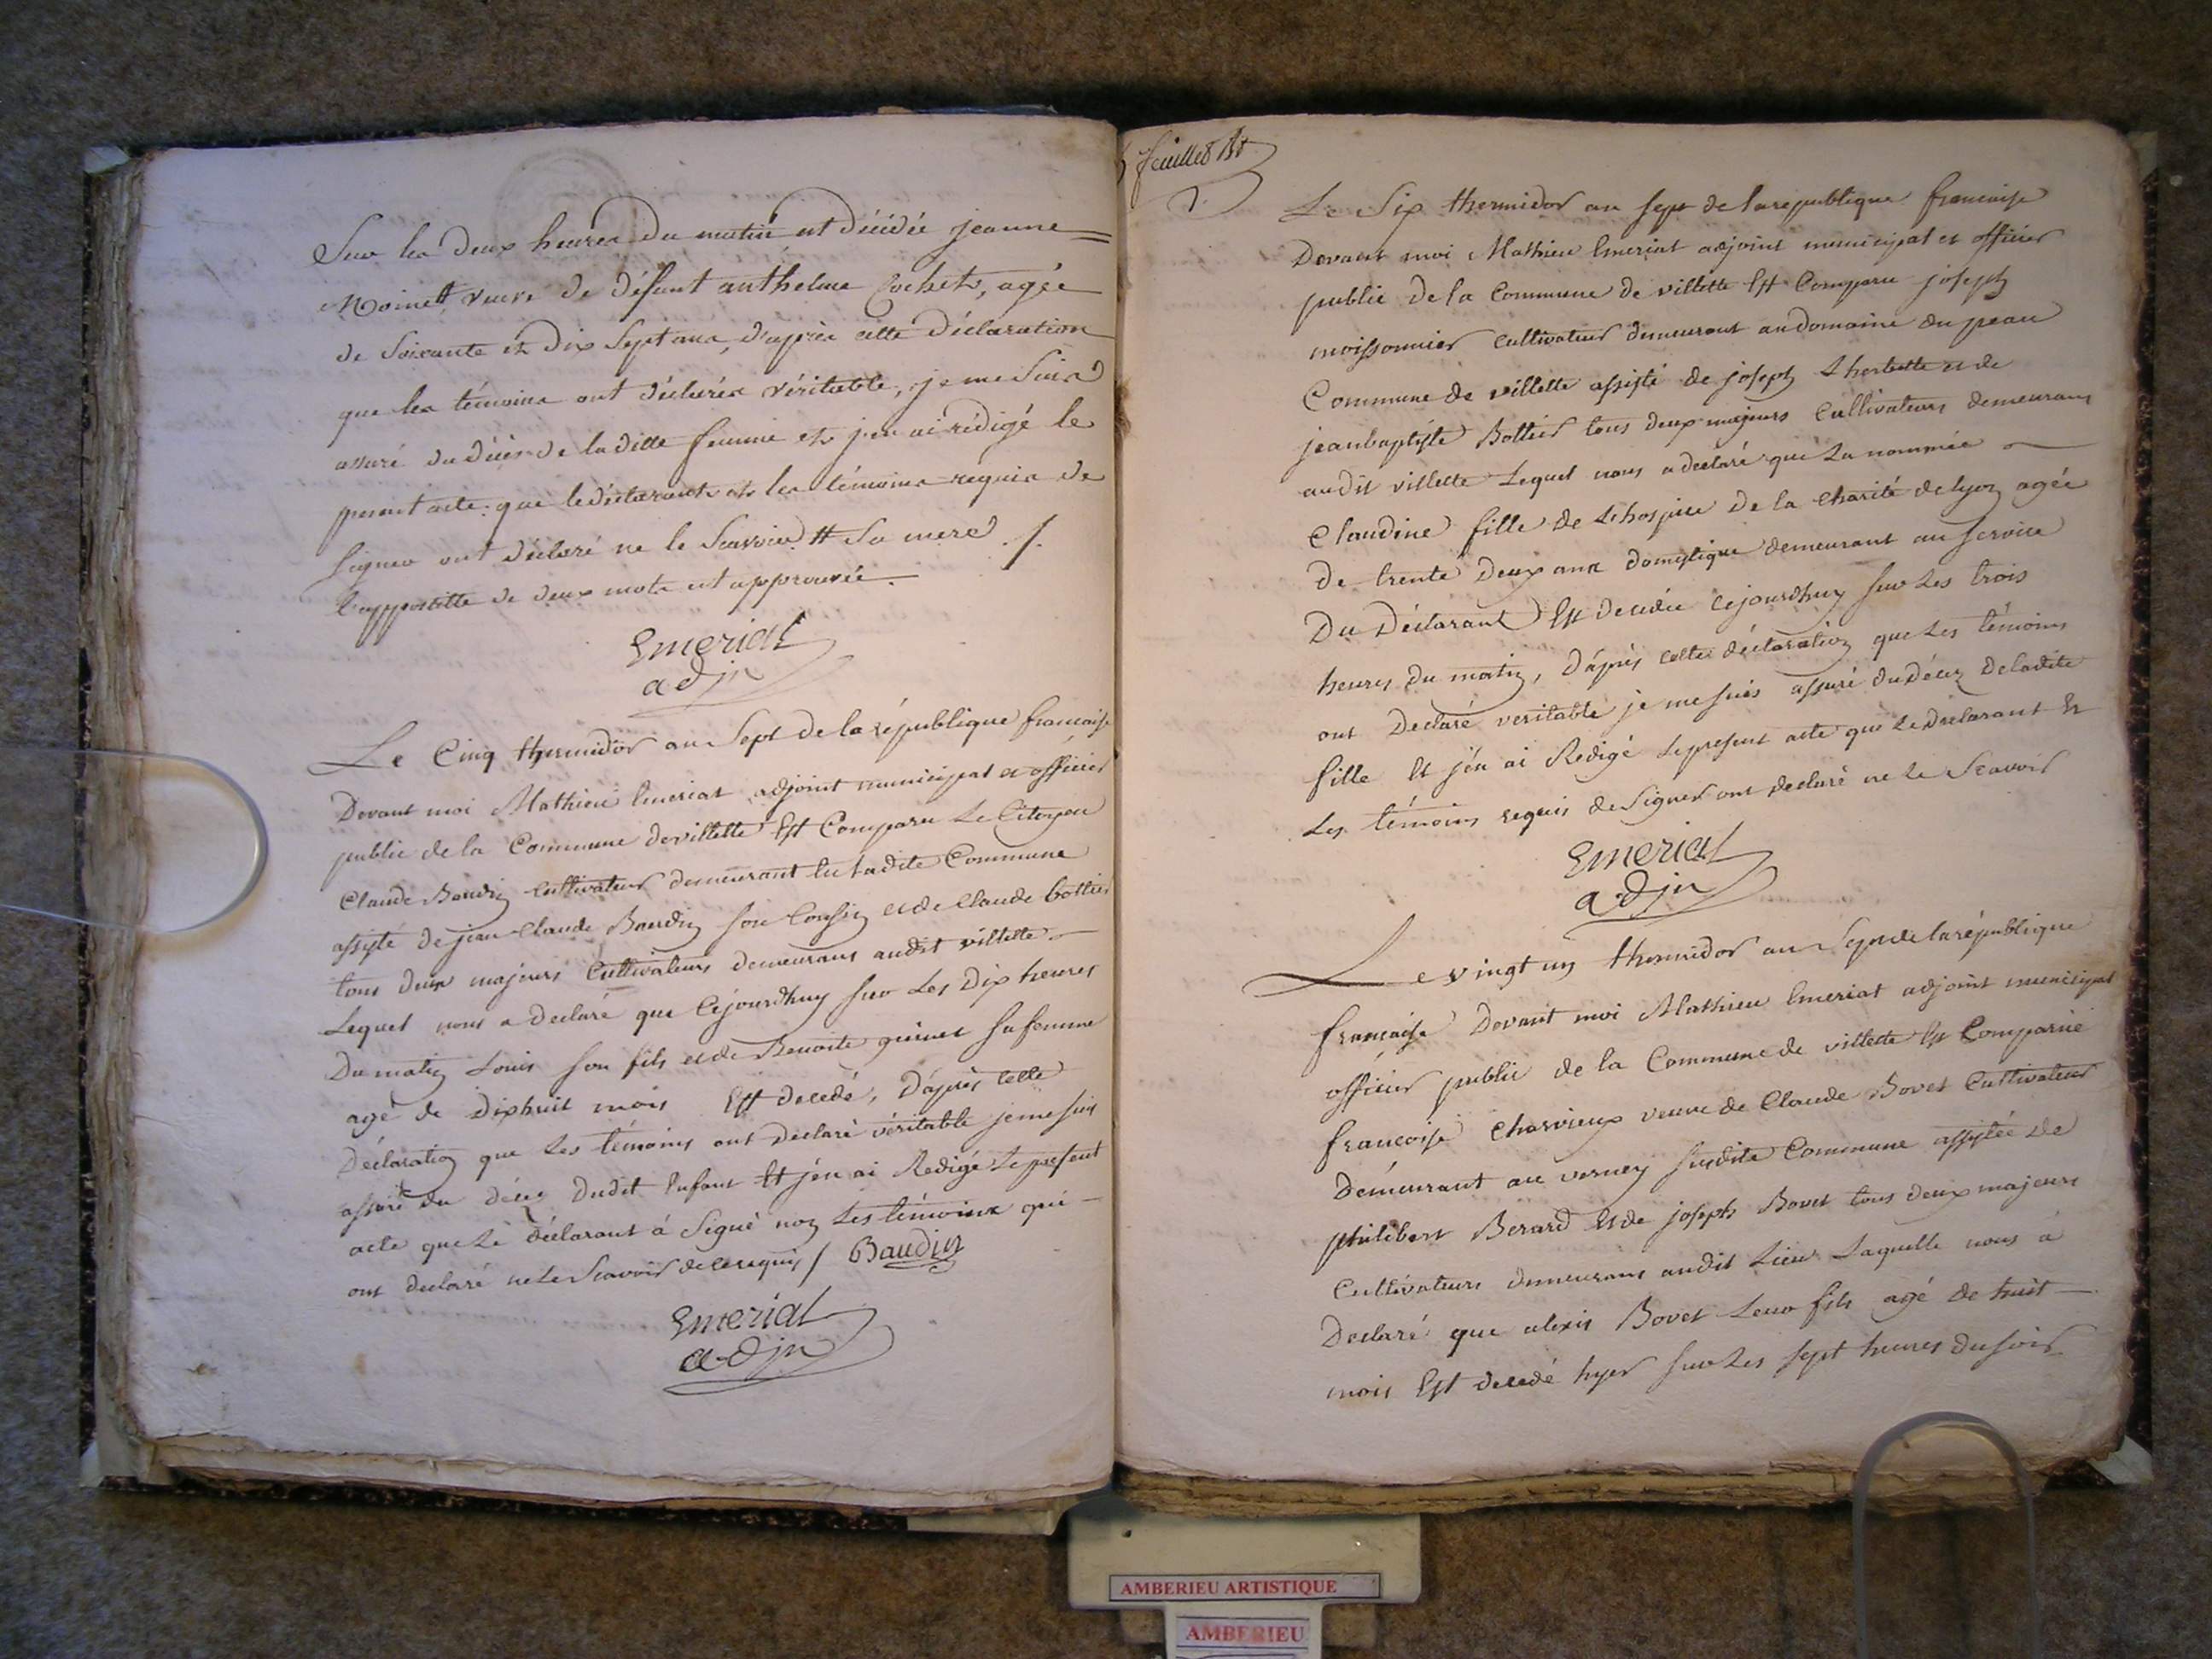 Sur les deux heures du matin est décédée jeanne =
Moinet veuve de défunt anthelme Cochet, agée
de Soixante et Dix Sept ans, d'après cette déclaration
que les témoins ont déclarés véritable, je me Suis
assuré du décès de la ditte femme et j'en ai rédigé le
present acte que le déclarant et les témoins requis de
signer ont déclaré ne le Scavoir # Sa mere ./.
l'appostille de deux mots est approuvée.
Emeriat
adjn
Le Cinq thermidor an Sept de la république francaise
Devant moi Mathieu Emeriat adjoint municipal et officier
public de la Commune de villette Est Comparu Le Citoyen
Claude Baudin cultivateur demeurant En ladite Commune
assisté de jean Claude Baudin son Cousin et de Claude bottier
tous deux majeurs Cultivateurs demeurans audit villette
Lequel nous a declaré que Cejourdhuy sur Les Dix heures
Du matin Louis son fils et de Benoite guinet sa femme
agé de dixhuit mois Est decedé, D'aprés cette
Déclaration que Les témoins ont declaré véritable je me suis
assuré du décès dudit Enfant Et j'en ai Redigé Le present
acte que Le déclarant à Signé non Les témoins qui
ont declaré ne Le Scavoir de ce requis / Baudin
Emeriat
adjn
feuillet
Le Six thermidor an sept de la republique francaise
Devant moi Mathieu Emeriat adjoint municipal et officier
public de la Commune de villette Est Comparu joseph
moissonnier Cultivateur demeurant au domaine du peau
Commune de villette assisté de joseph Lherbette et de
jean baptiste Bottier tous deux majeurs Cultivateurs demeurans
audit villette Lequel nous a declaré que La nommée
Claudine fille de Lhospice de la Charité de lyon agée
de trente deux ans domestique demeurant au service
Du Déclarant Est decedée cejourdhuy sur Les trois
heures du matin, D'aprés cette déclaration que Les témoins
ont Declaré veritable je me suis assuré du Décès de ladite
fille Et j'en ai Redigé Le present acte que Le declarant Et
Les témoins requis de Signer ont declaré ne Le Scavoir
Emeriat
adjn
Le vingt un thermidor an Sept de la république
francaise Devant moi Mathieu Emeriat adjoint municipal
officier public de la Commune de villette Est Comparue
francoise Charvieux veuve de Claude Bovet Cultivateur
Demeurant au verney susdite Commune assistée de
philibert Berard Et de joseph Bovet tous deux majeurs
Cultivateurs demeurans audit Lieu Laquelle nous à
Declaré que alexis Bovet Leur fils agé de huit
mois Est decedé hyer sur Les sept heures du soir
AMBERIEU ARTISTIQUE
AMBERIEU